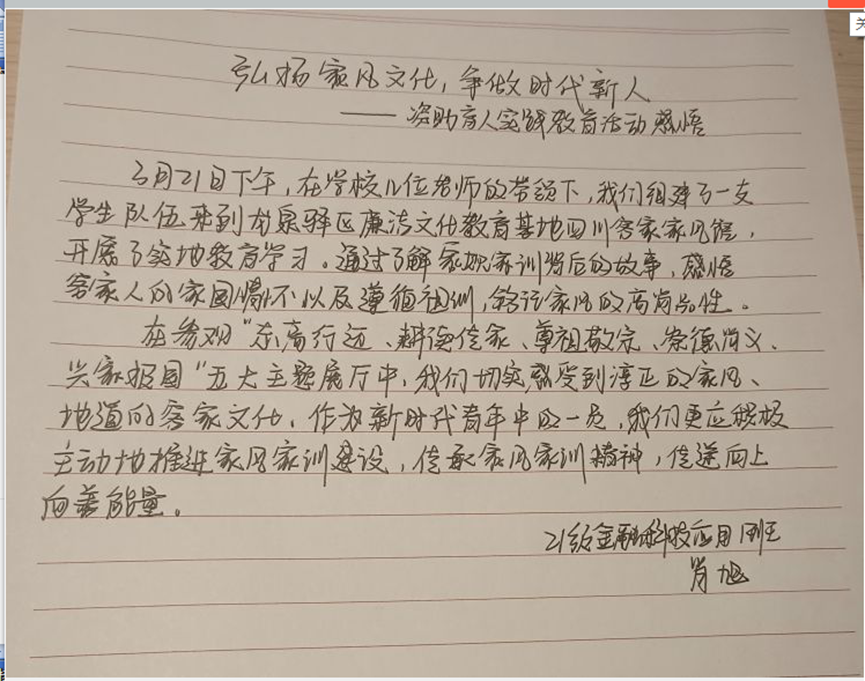 弘扬家风文化，争做时代新人
——资助育人实践教育活动感悟
3月21日下午，在学校几位老师的带领下，我们组建了一支
学生队伍来到龙泉驿区廉洁文化教育基地四川客家家风馆，
开展了实地教育学习。通过了解家规家训背后的故事，感悟
客家人的家国情怀以及遵循祖训，铭记家风的高尚品性。
在参观“东高行远、耕读传家、尊祖敬宗、崇德尚义、
兴家报国”五大主题展厅中，我们切实感受到淳正的家风、
地道的客家文化，作为新时代青年中的一员，我们更应积极
主动地推进家风家训建设，传承家风家训精神，传递向上
向善能量。
21级金融科技应用1班
肖旭
关